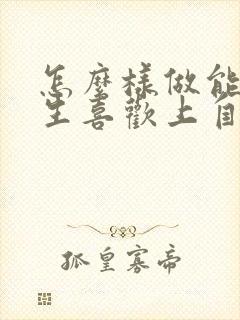 怎麼樣做能
生喜歡上自
孤皇寡帝